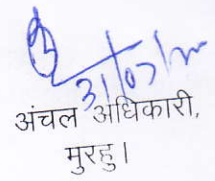 31/07/
अंचल अधिकारी,
मुरहु।